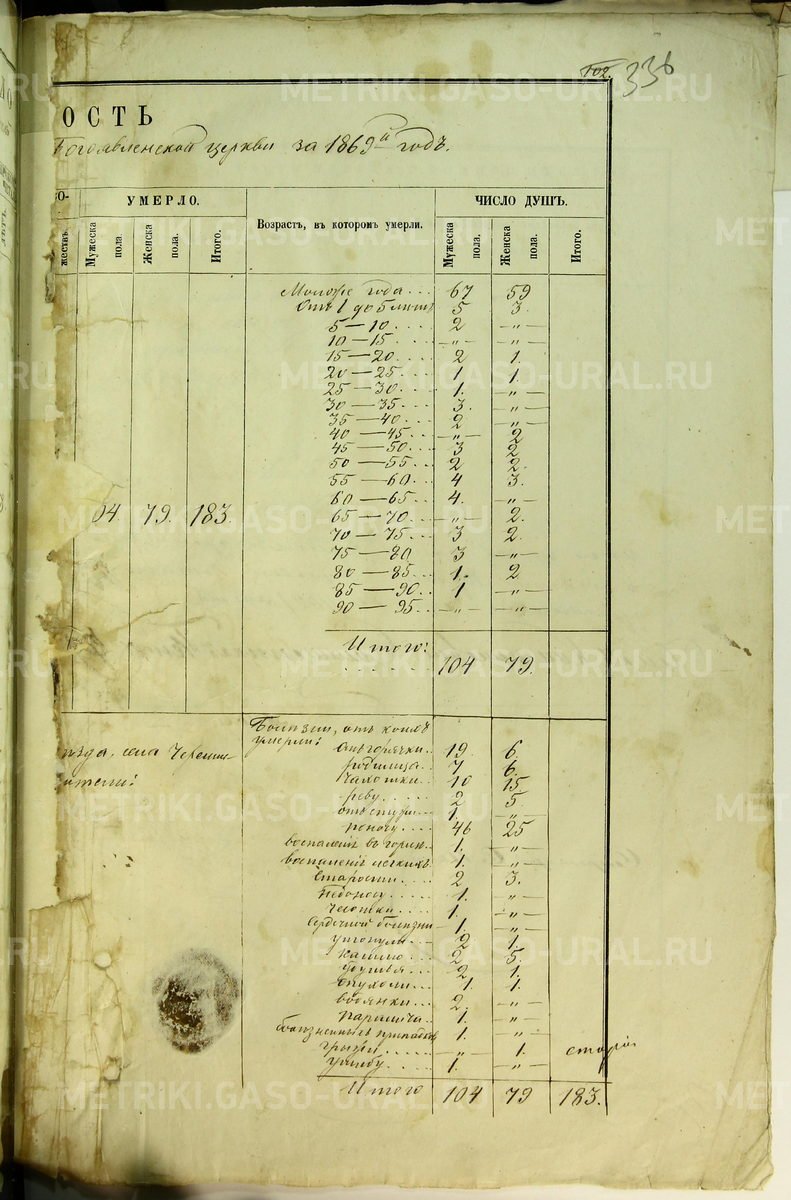 102. 336
ОСТЬ
Богоявленской церкви за 1869й годъ.
УМЕРЛО. Возрастъ, въ которомъ умерли. ЧИСЛО ДУШЪ.
Мужеска пола. Женска пола. Итого. Мужеска пола. Женска пола. Итого.
Моложе года... 67 59
Отъ 1 до 5 лѣтъ 5 3.
5—10.... 2 —„—
10—15.... —„— —„—
15—20... 2 1.
20—25... 1 1.
25—30... 1. —„—
30—35... 3. —„—
35—40... 2 —„—
40—45... —„— 2
45—50... 3 2
50—55... 2 2.
55—60... 4 3.
60—65... 4. —„—
04. 79. 183. 65—70... —„— 2.
70—75... 3 2.
75—80 3 —„—
80—85... 1. 2
85—90... 1 —„—
90—95... —„— —„—
Итого: 104 79.
Болѣзни, отъ коихъ
умерли:
Отъ горячки.. 19. 6.
родимца.. 7 6.
чахотки.. 10 15
реву..... 2 5.
1. —„—
поносу.... 46 25
воспаленія въ горлѣ.. 1. —„—
воспаленія легкихъ 1. —„—
Старости.... 2 3.
Недоносу.... 1. —„—
Чесотки.... 1. —„—
Сердечной болѣзни 1. —„—
утонули... 2 1.
кашлю... 2 5.
удушья... 2 1.
опухоли... 1 1.
водянки... 2 —„—
паралича.. 1. —„—
болѣзненныхъ припадковъ 1. —„—
грыжи..... —„— 1.
ушибу.... 1. —„—
Итого 104 79 183.
уѣзда, села
METRIKI.GASO-URAL.RU